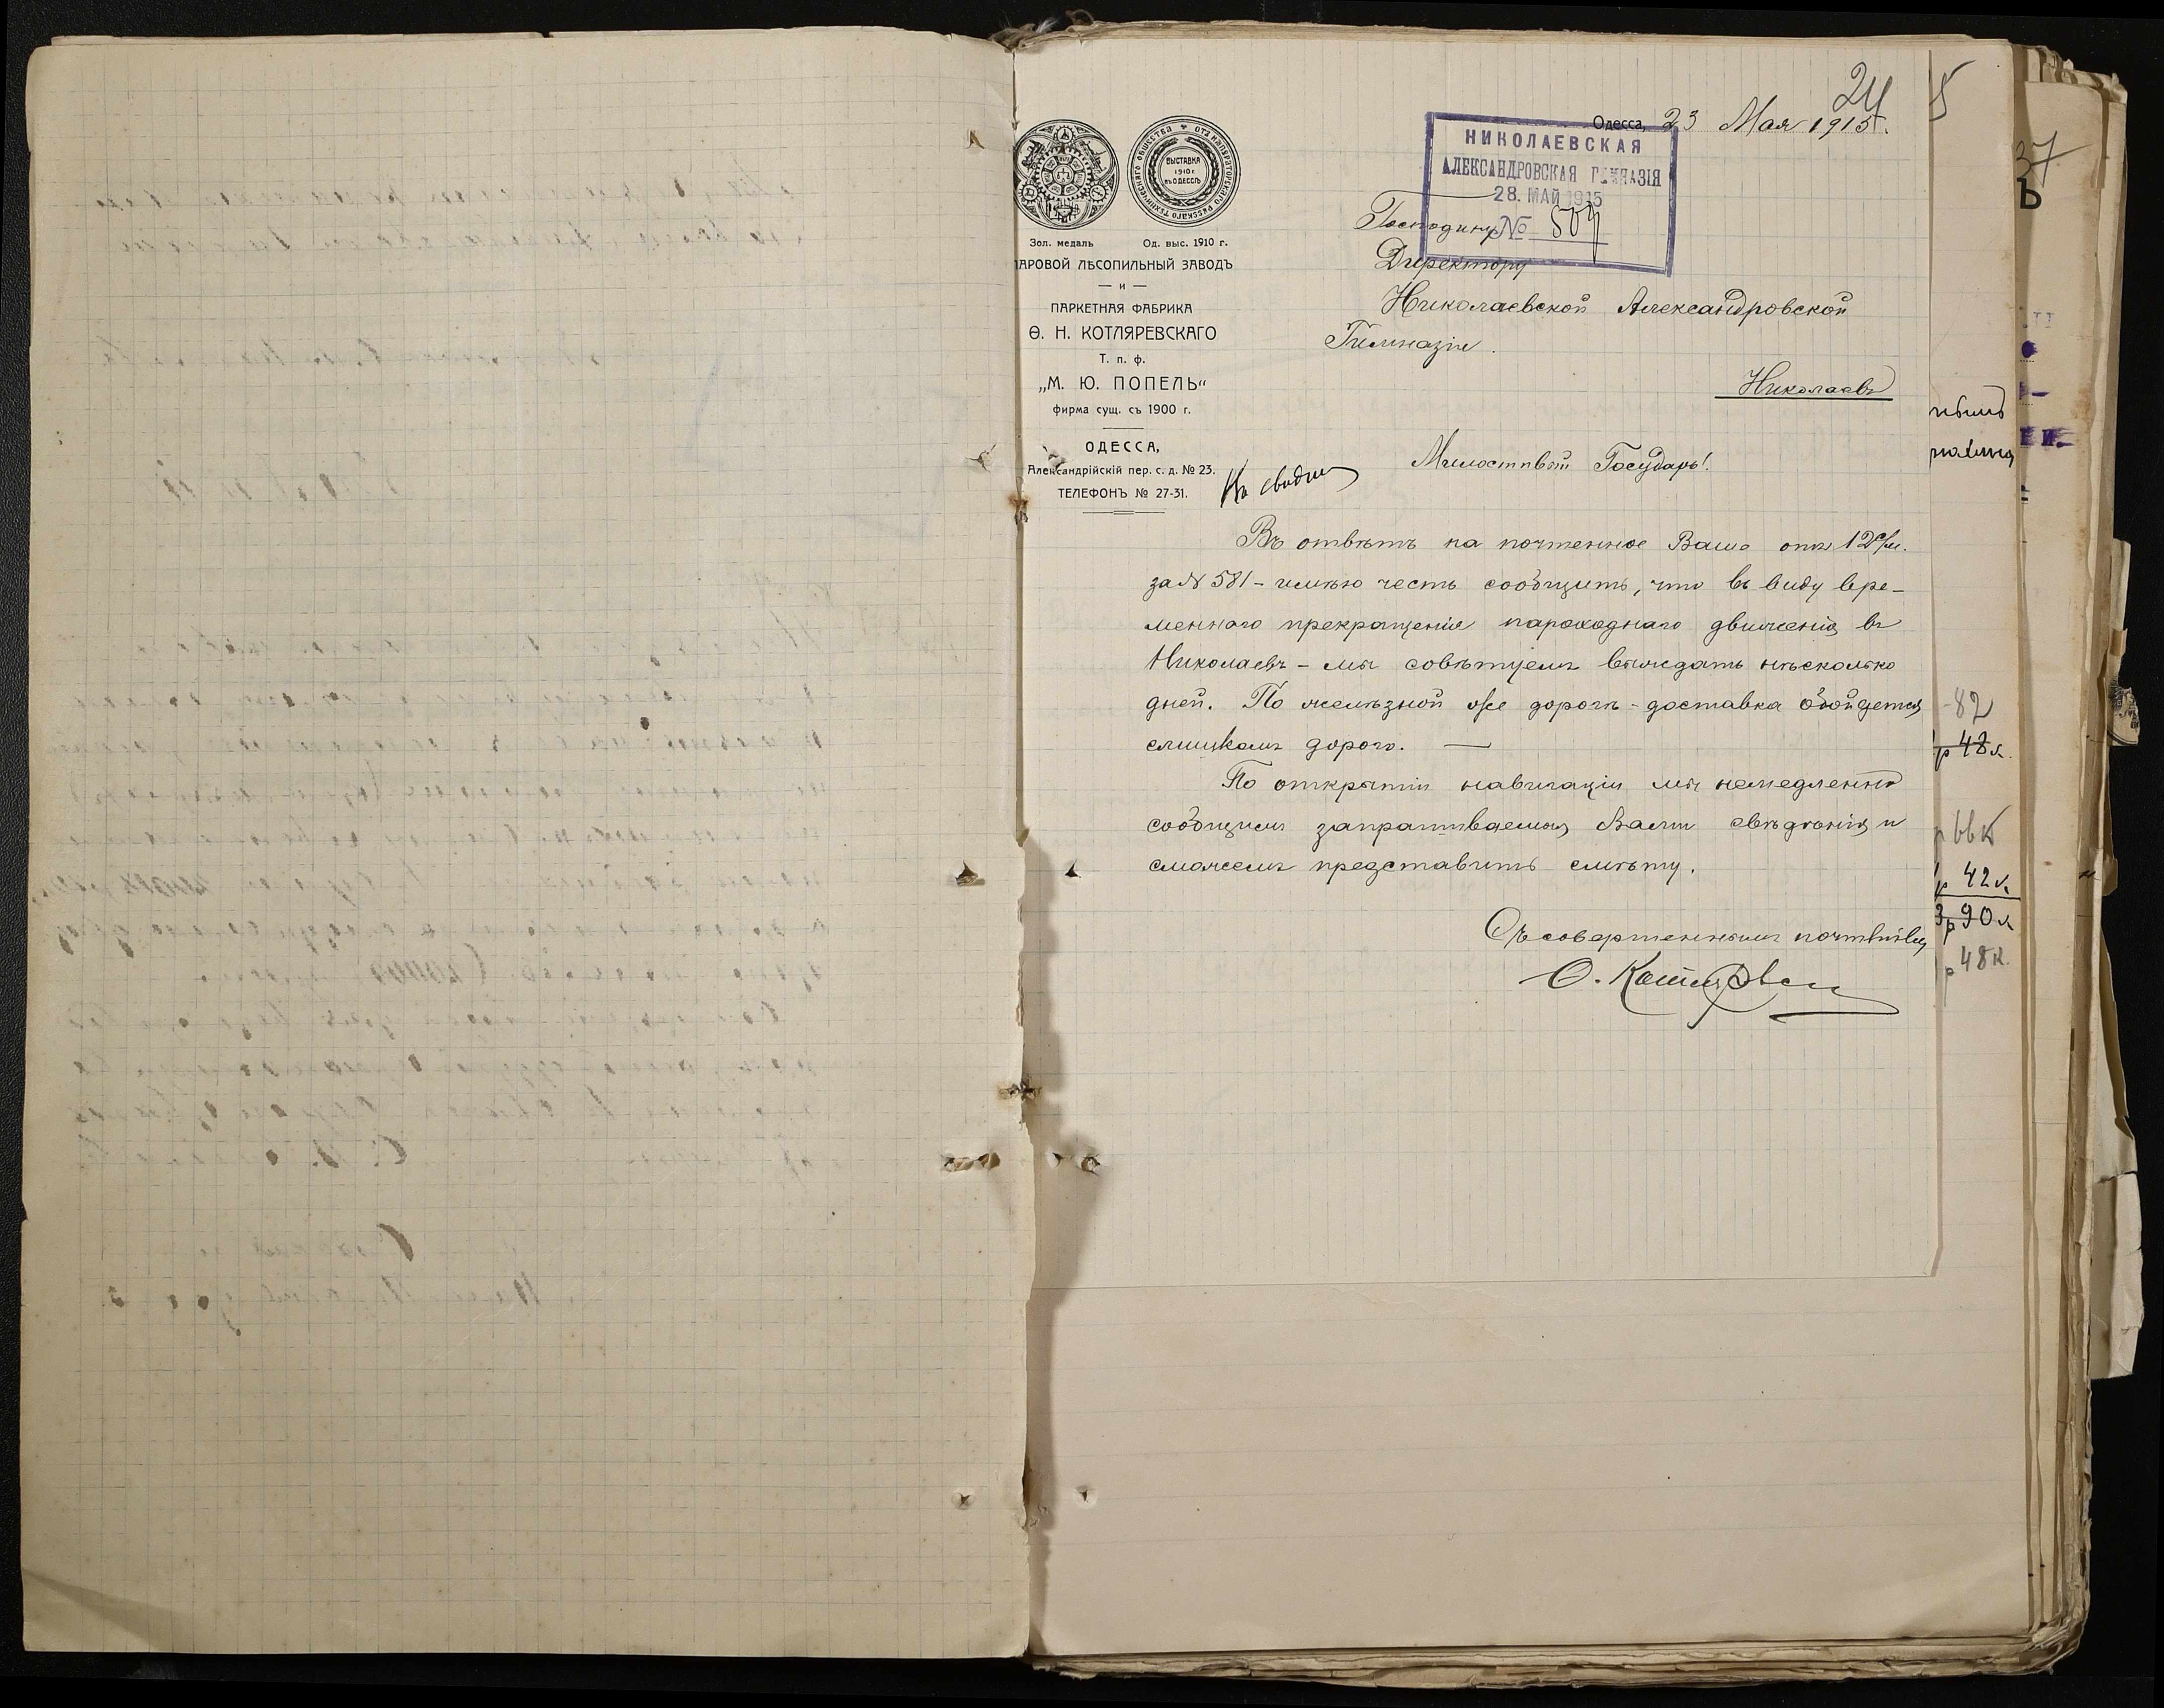 24
Одесса, 23 Мая 1915 г.
НИКОЛАЕВСКАЯ
АЛЕКСАНДРОВСКАЯ ГИМНАЗІЯ
28. МАЙ 1915
№ 509
ОТЪ ИМПЕРАТОРСКАГО РУССКАГО ТЕХНИЧЕСКАГО ОБЩЕСТВА
ВЫСТАВКА
1910 г.
ВЪ ОДЕССѢ
Зол. медаль Од. выс. 1910 г.
ПАРОВОЙ ЛѢСОПИЛЬНЫЙ ЗАВОДЪ
— и —
ПАРКЕТНАЯ ФАБРИКА
Ѳ. Н. КОТЛЯРЕВСКАГО
Т. п. ф.
„М. Ю. ПОПЕЛЬ“
фирма сущ. съ 1900 г.
ОДЕССА,
Александрійскій пер. с. д. № 23.
ТЕЛЕФОНЪ № 27-31.
Господину
Директору
Николаевской Александровской
Гимназіи.
Николаевъ
Милостивый Государь!
Въ отвѣтъ на почтенное Ваше отъ 12 с/м.
за № 581 – имѣю честь сообщить, что въ виду вре-
меннаго прекращенія пароходнаго движенія въ
Николаевъ – мы совѣтуемъ выждать нѣсколько
дней. По желѣзной же дорогѣ – доставка обойдется
слишкомъ дорого. —
По открытіи навигаціи мы немедленно
сообщимъ запрашиваемыя Вами свѣдѣнія и
сможемъ представить смѣту.
Съ совершеннымъ почтеніемъ
Ѳ. Котляревскій
37
Ъ
82
р 48 к.
р 42 к.
3 р 90 к
р 48 к.